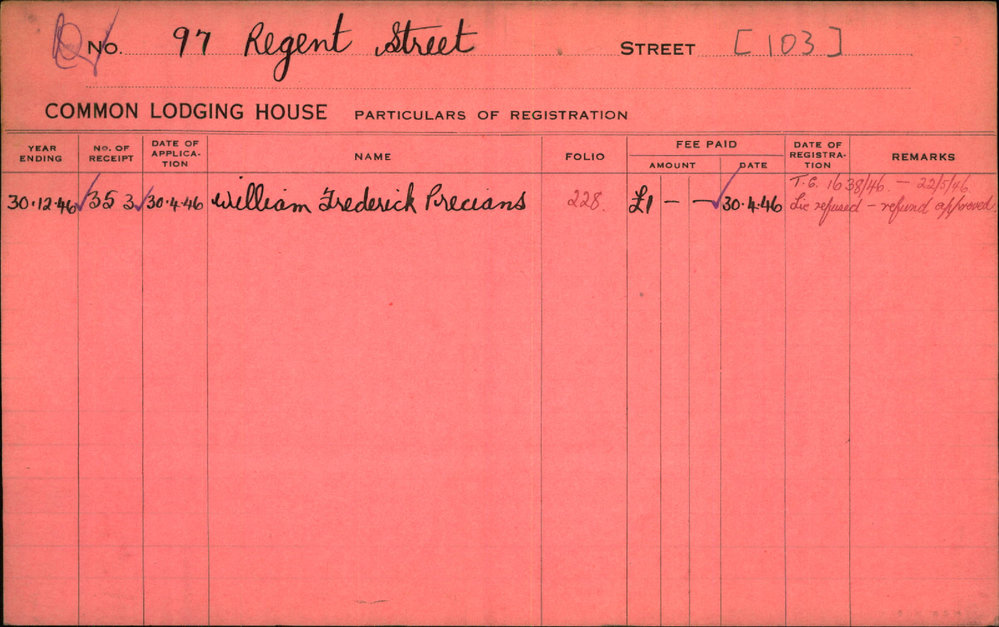 No. 97 Regent Street STREET [103]
COMMON LODGING HOUSE PARTICULARS OF REGISTRATION
YEAR ENDING No. OF RECEIPT DATE OF APPLICA-TION NAME FOLIO FEE PAID AMOUNT DATE DATE OF REGISTRA-TION REMARKS
T.C. 1638/46. — 22/5/46.
30.12.46 353 30.4.46 William Frederick Precians 228. £1 — — 30.4.46 Lic refused — refund approved